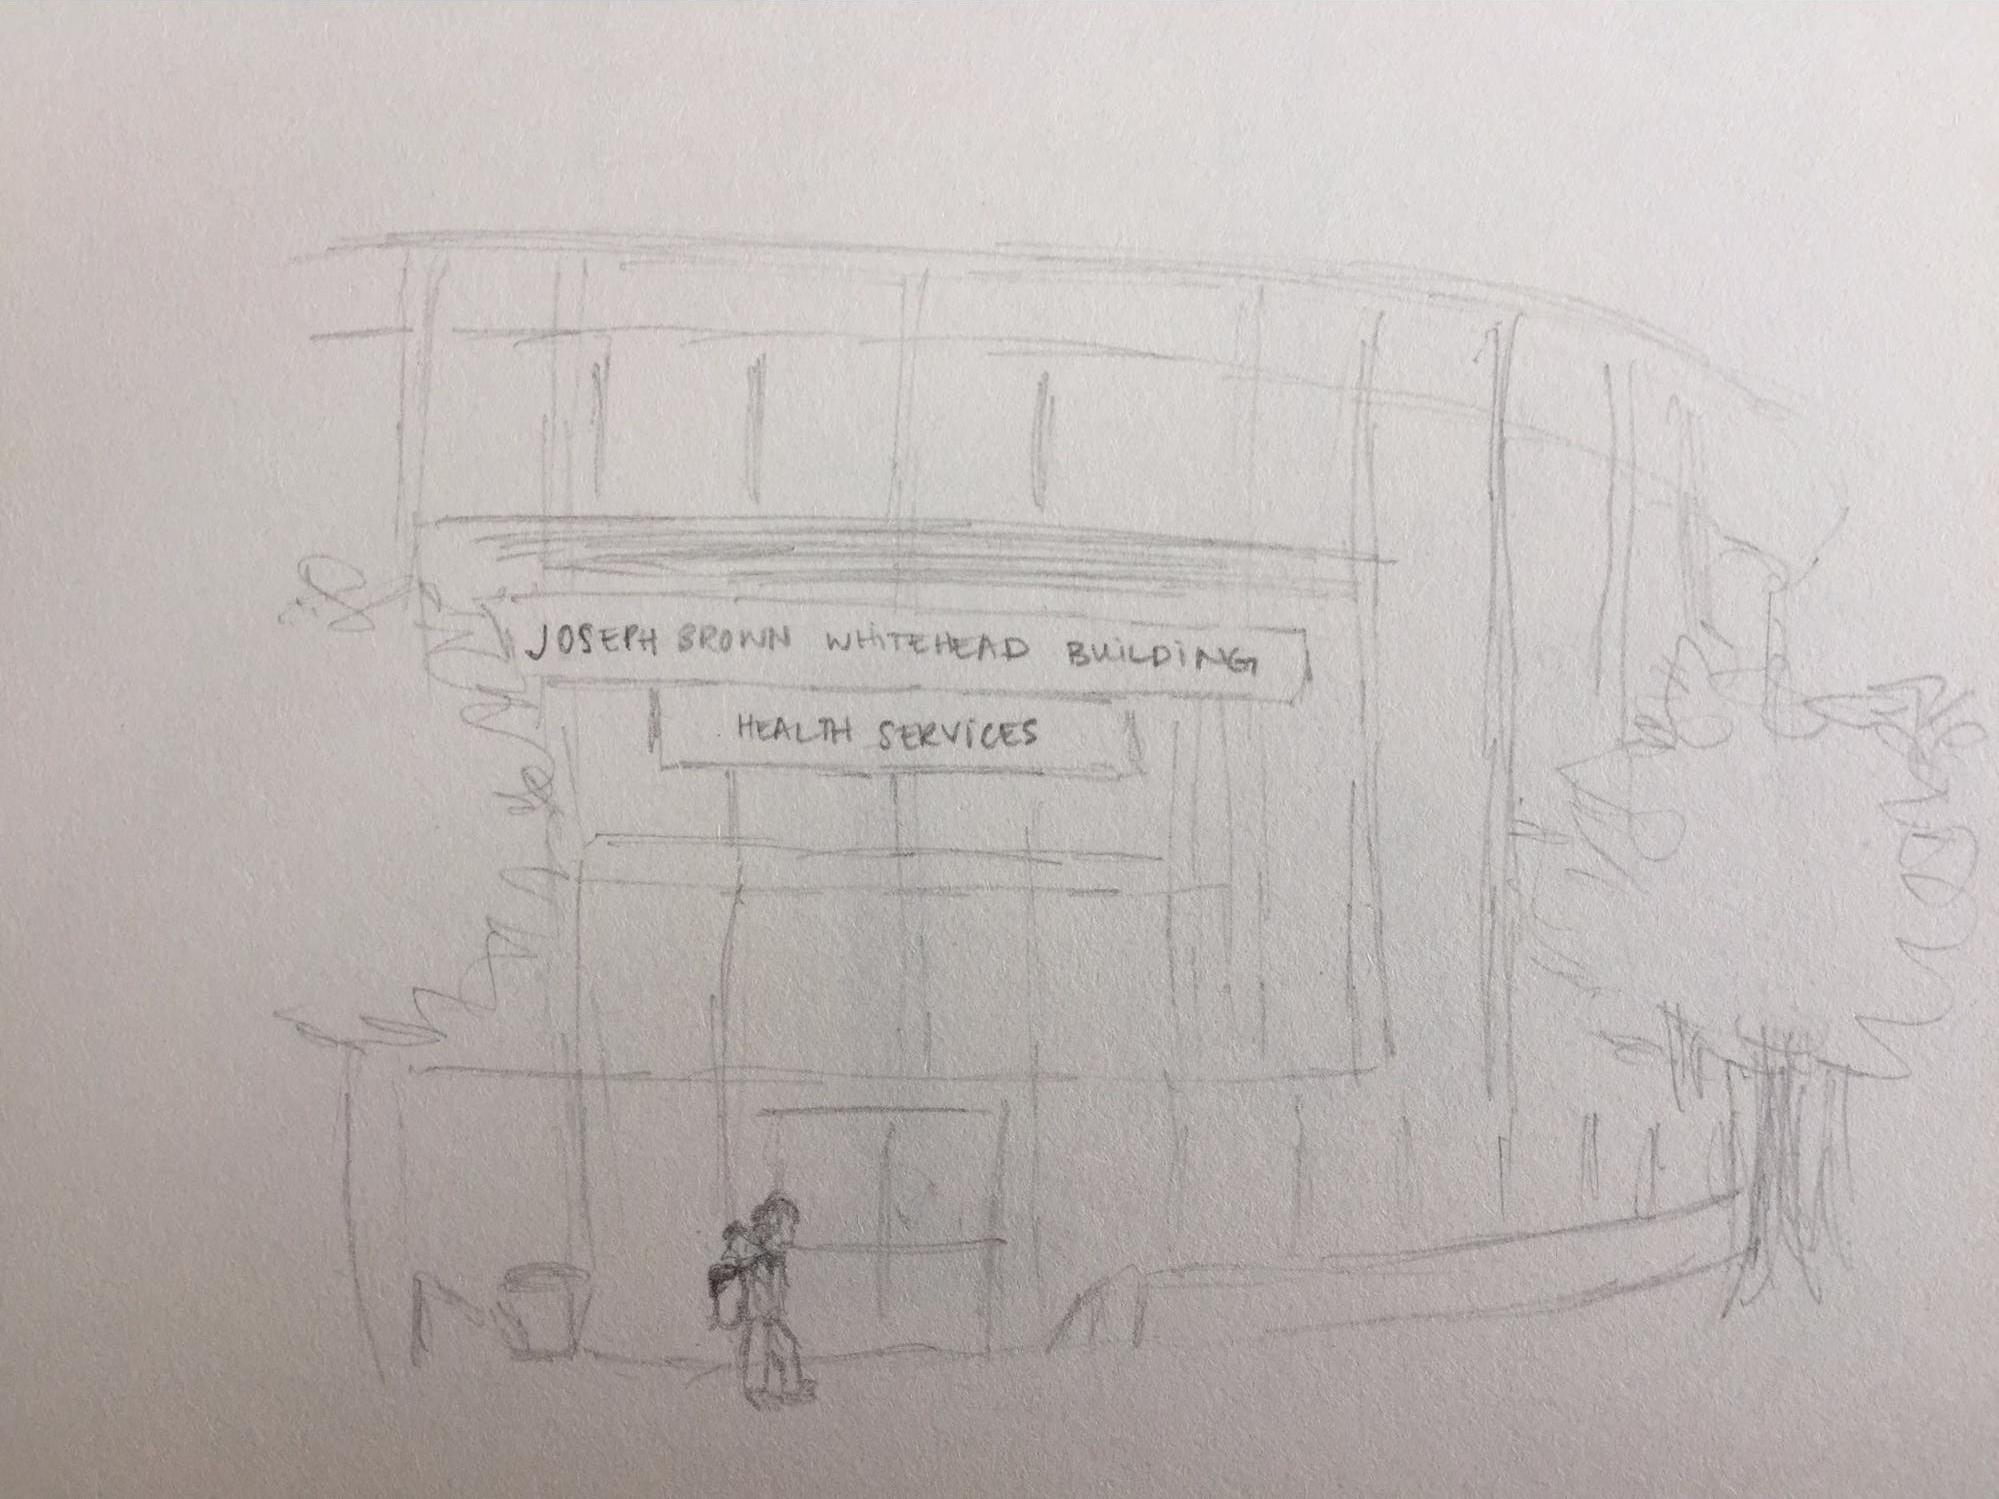 JOSEPH BROWN WHITEHEAD BUILDING
HEALTH SERVICES